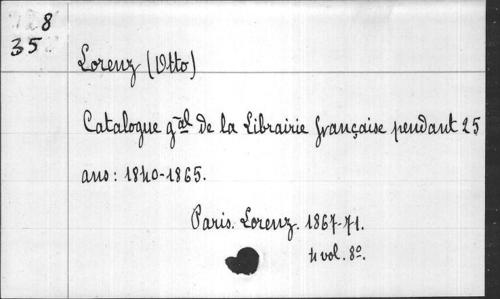 8
35
Lorenz (Otto)
Catalogue gal de la Librairie française pendant 25
ans : 1840-1865.
Paris. Lorenz. 1867-71.
4 vol. 8º.